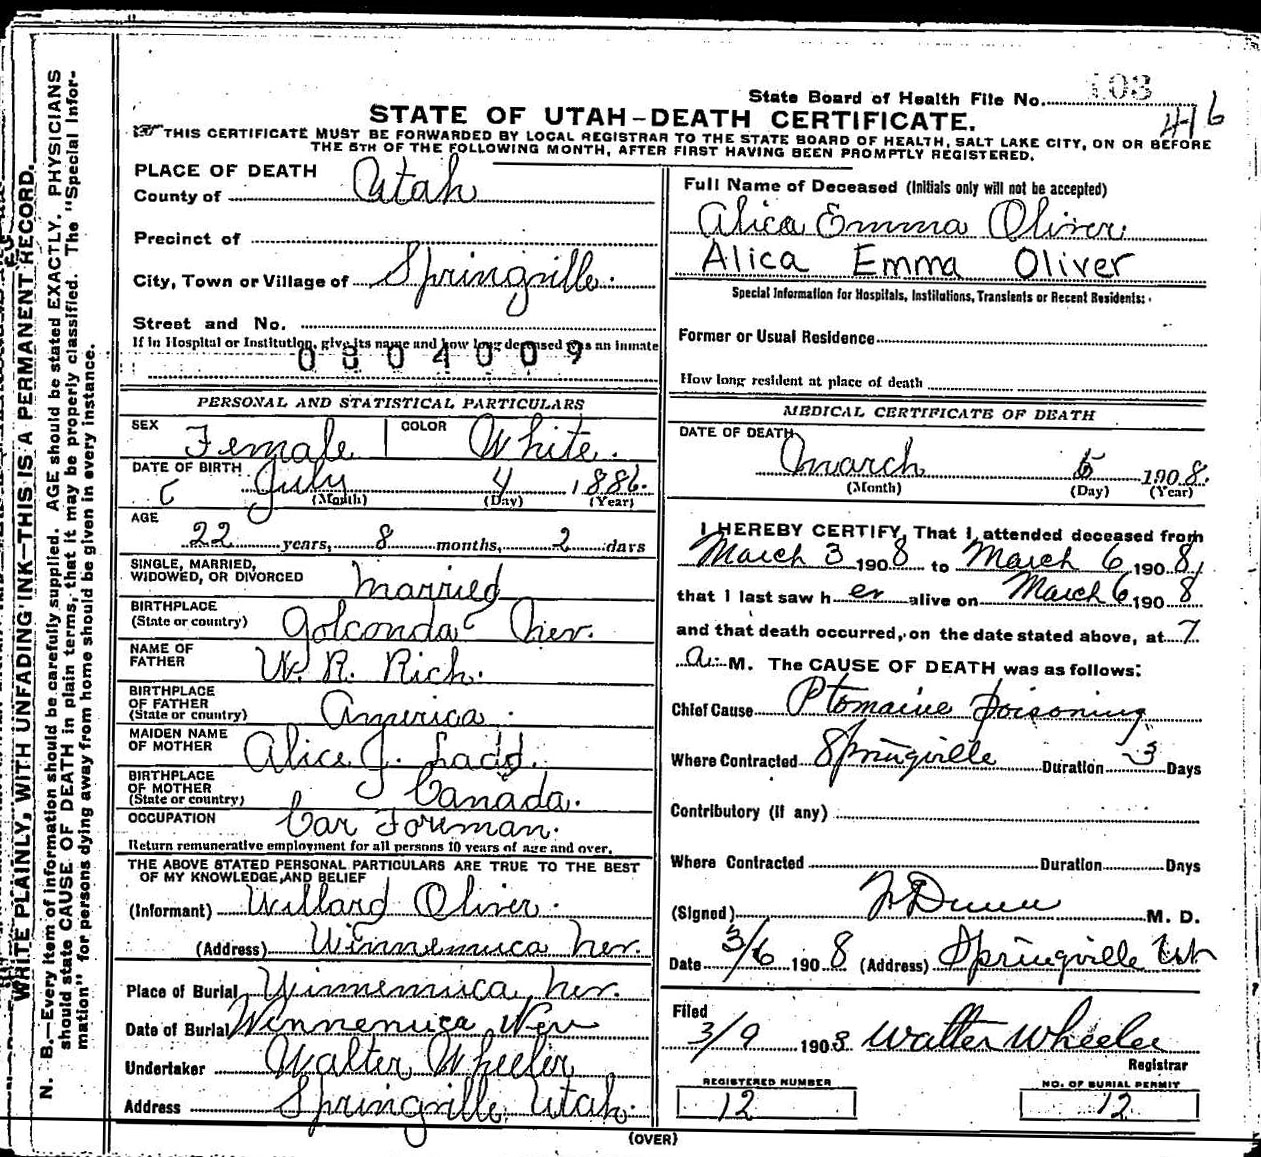 WRITE PLAINLY, WITH UNFADING INK—THIS IS A PERMANENT RECORD.
N. B.—Every item of information should be carefully supplied. AGE should be stated EXACTLY. PHYSICIANS
should state CAUSE OF DEATH in plain terms, that it may be properly classified. The "Special Infor-
mation" for persons dying away from home should be given in every instance.
State Board of Health File No. 103
416
STATE OF UTAH—DEATH CERTIFICATE.
THIS CERTIFICATE MUST BE FORWARDED BY LOCAL REGISTRAR TO THE STATE BOARD OF HEALTH, SALT LAKE CITY, ON OR BEFORE
THE 5TH OF THE FOLLOWING MONTH, AFTER FIRST HAVING BEEN PROMPTLY REGISTERED.
PLACE OF DEATH
County of Utah
Precinct of
City, Town or Village of Springville.
Street and No.
If in Hospital or Institution, give its name and how long deceased was an inmate
0804009
PERSONAL AND STATISTICAL PARTICULARS
SEX Female COLOR White.
DATE OF BIRTH July 4, 1886.
(Month) (Day) (Year)
AGE
22 years, 8 months, 2 days
SINGLE, MARRIED,
WIDOWED, OR DIVORCED married
BIRTHPLACE
(State or country) Golconda Nev.
NAME OF
FATHER W. R. Rich.
BIRTHPLACE
OF FATHER
(State or country) America.
MAIDEN NAME
OF MOTHER Alice J. Ladd.
BIRTHPLACE
OF MOTHER
(State or country) Canada.
OCCUPATION Car Foreman.
Return remunerative employment for all persons 10 years of age and over.
THE ABOVE STATED PERSONAL PARTICULARS ARE TRUE TO THE BEST
OF MY KNOWLEDGE AND BELIEF
(Informant) Willard Oliver.
(Address) Winnemuca Nev.
Place of Burial Winnemuca, Nev.
Date of Burial Winnemuca Nev
Undertaker Walter Wheeler
Address Springville Utah.
Full Name of Deceased (Initials only will not be accepted)
Alica Emma Oliver
Alica Emma Oliver
Special Information for Hospitals, Institutions, Transients or Recent Residents:
Former or Usual Residence
How long resident at place of death
MEDICAL CERTIFICATE OF DEATH
DATE OF DEATH
March 6 1908.
(Month) (Day) (Year)
I HEREBY CERTIFY, That I attended deceased from
March 3 1908 to March 6 1908,
that I last saw her alive on March 6, 1908
and that death occurred, on the date stated above, at 7
a. M. The CAUSE OF DEATH was as follows:
Chief Cause Ptomaine poisoning
Where Contracted Springville Duration 3 Days
Contributory (if any)
Where Contracted Duration Days
(Signed) Dunn M. D.
Date 3/6 1908 (Address) Springville Utah
Filed
3/9 1908 Walter Wheeler
Registrar
REGISTERED NUMBER
12
NO. OF BURIAL PERMIT
12
(OVER)